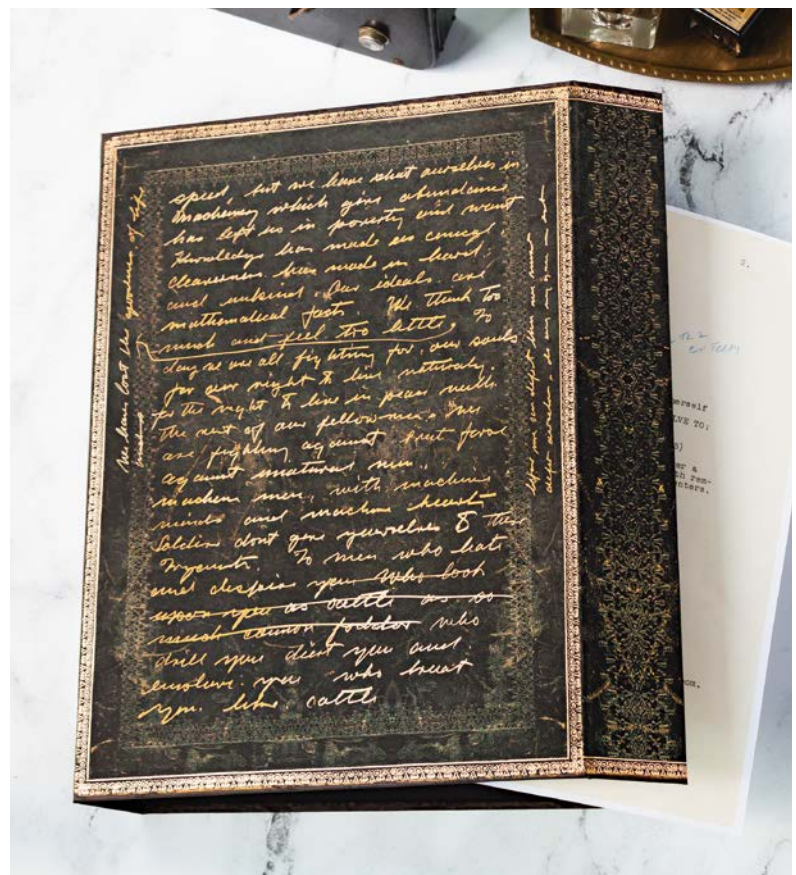 We have lost the goodness of life
speed, but we have shut ourselves in
Machinery which gives abundance
has left us in poverty and want
Knowledge has made us cynical
cleverness has made us hard
and unkind. Our ideals are
mathematical facts. We think too
much and feel too little, To
day we are all fighting for our souls
for our right to live naturaly.
for the right to live in peace with
the rest of our fellow men. We
are fighting against brut force
against unatural men.
machine men, with machine
minds and machine hearts
Soldiers dont give yourselves to these
Tryants. To men who hate
and despise you who look
upon you as cattle as so
much cannon fodder who
drill you diet you and
enslave you who treat
you like cattle
2.
erself
LVE TO:
er a
th rem-
enters.